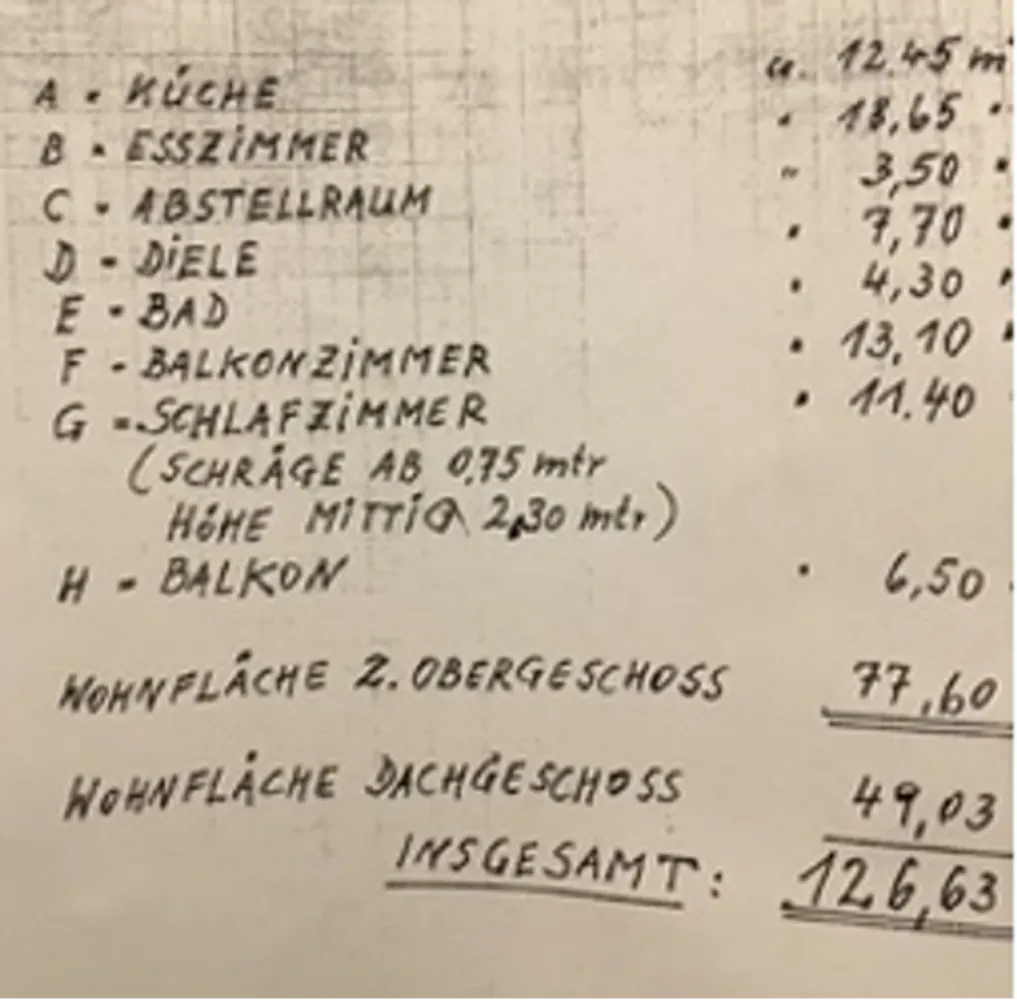 A - KÜCHE u. 12.45 m²
B - ESSZIMMER " 18,65 "
C - ABSTELLRAUM " 3,50 "
D - DIELE " 7,70 "
E - BAD " 4,30 "
F - BALKONZIMMER " 13,10 "
G - SCHLAFZIMMER " 11.40
(SCHRÄGE AB 0,75 mtr
HÖHE MITTIG 2,30 mtr)
H - BALKON " 6,50
WOHNFLÄCHE 2. OBERGESCHOSS 77,60
WOHNFLÄCHE DACHGESCHOSS 49,03
INSGESAMT: 126,63